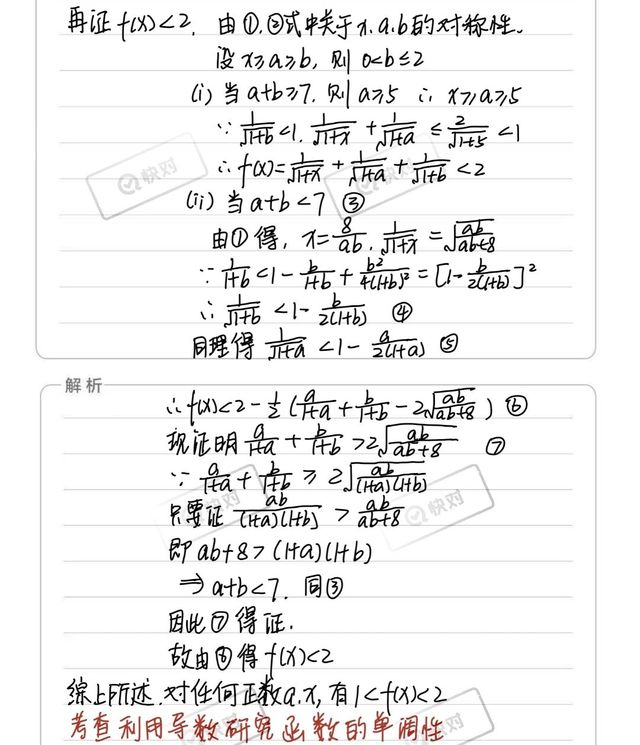 再证 f(x)<2, 由①,②式中关于 x,a,b的对称性。
设 x≥a≥b, 则 0<b≤2
(i) 当 a+b≥7, 则 a≥5 ∴ x≥a≥5
∵ 1/√(1+b) <1, 1/√(1+x) + 1/√(1+a) ≤ 2/√(1+5) <1
∴ f(x)= 1/√(1+x) + 1/√(1+a) + 1/√(1+b) <2
(ii) 当 a+b<7 ③
由①得, x= 8/ab, 1/√(1+x) = √(ab/(ab+8))
∵ 1/(1+b) <1- b/(1+b) + b²/4(1+b)² = [1- b/2(1+b)]²
∴ 1/√(1+b) <1- b/2(1+b) ④
同理得 1/√(1+a) <1- a/2(1+a) ⑤
解析
∴ f(x)<2- 1/2 (a/(1+a) + b/(1+b) -2√(ab/(ab+8)) ) ⑥
现证明 a/(1+a) + b/(1+b) >2√(ab/(ab+8)) ⑦
∵ a/(1+a) + b/(1+b) ≥ 2√(ab/(1+a)(1+b))
只要证 ab/(1+a)(1+b) > ab/(ab+8)
即 ab+8>(1+a)(1+b)
⇒ a+b<7, 同③
因此⑦得证.
故由⑥得 f(x)<2
综上所述,对任何正数a,x,有1<f(x)<2
考查利用导数研究函数的单调性
快对
快对
快对
快对
快对